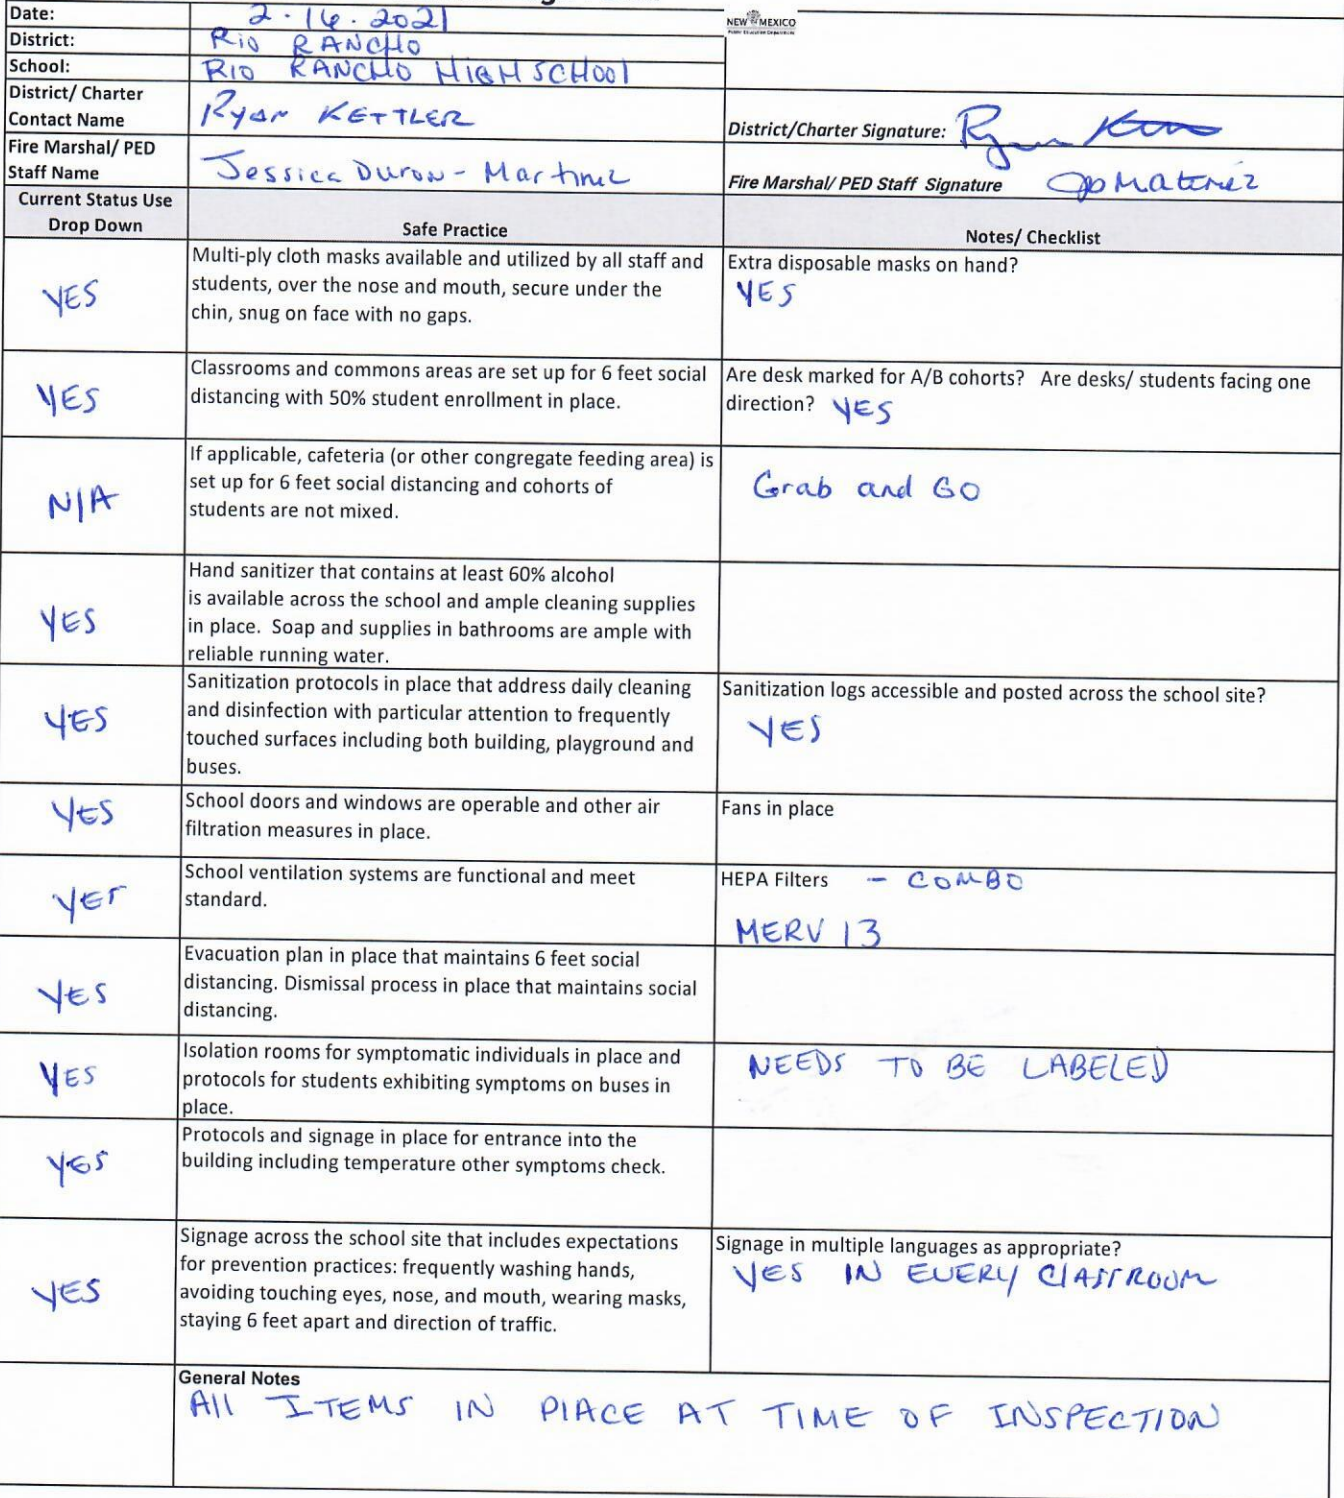 Date: 2.16.2021
NEW MEXICO
Public Education Department
District: RiO RANCHO
School: RIO RANCHO HIGH SCHOOl
District/ Charter
Contact Name RYAN KETTLER
District/Charter Signature:
Fire Marshal/ PED
Staff Name Jessica Duron - Martinez
Fire Marshal/ PED Staff Signature
Current Status Use
Drop Down
Safe Practice
Notes/ Checklist
YES
Multi-ply cloth masks available and utilized by all staff and
students, over the nose and mouth, secure under the
chin, snug on face with no gaps.
Extra disposable masks on hand?
YES
YES
Classrooms and commons areas are set up for 6 feet social
distancing with 50% student enrollment in place.
Are desk marked for A/B cohorts? Are desks/ students facing one
direction? YES
N/A
If applicable, cafeteria (or other congregate feeding area) is
set up for 6 feet social distancing and cohorts of
students are not mixed.
Grab and GO
YES
Hand sanitizer that contains at least 60% alcohol
is available across the school and ample cleaning supplies
in place. Soap and supplies in bathrooms are ample with
reliable running water.
YES
Sanitization protocols in place that address daily cleaning
and disinfection with particular attention to frequently
touched surfaces including both building, playground and
buses.
Sanitization logs accessible and posted across the school site?
YES
YES
School doors and windows are operable and other air
filtration measures in place.
Fans in place
YES
School ventilation systems are functional and meet
standard.
HEPA Filters - COMBO
MERV 13
YES
Evacuation plan in place that maintains 6 feet social
distancing. Dismissal process in place that maintains social
distancing.
YES
Isolation rooms for symptomatic individuals in place and
protocols for students exhibiting symptoms on buses in
place.
NEEDS TO BE LABELED
YES
Protocols and signage in place for entrance into the
building including temperature other symptoms check.
YES
Signage across the school site that includes expectations
for prevention practices: frequently washing hands,
avoiding touching eyes, nose, and mouth, wearing masks,
staying 6 feet apart and direction of traffic.
Signage in multiple languages as appropriate?
YES IN EVERY ClASSROOM
General Notes
All ITEMS IN PlACE AT TIME OF INSPECTION